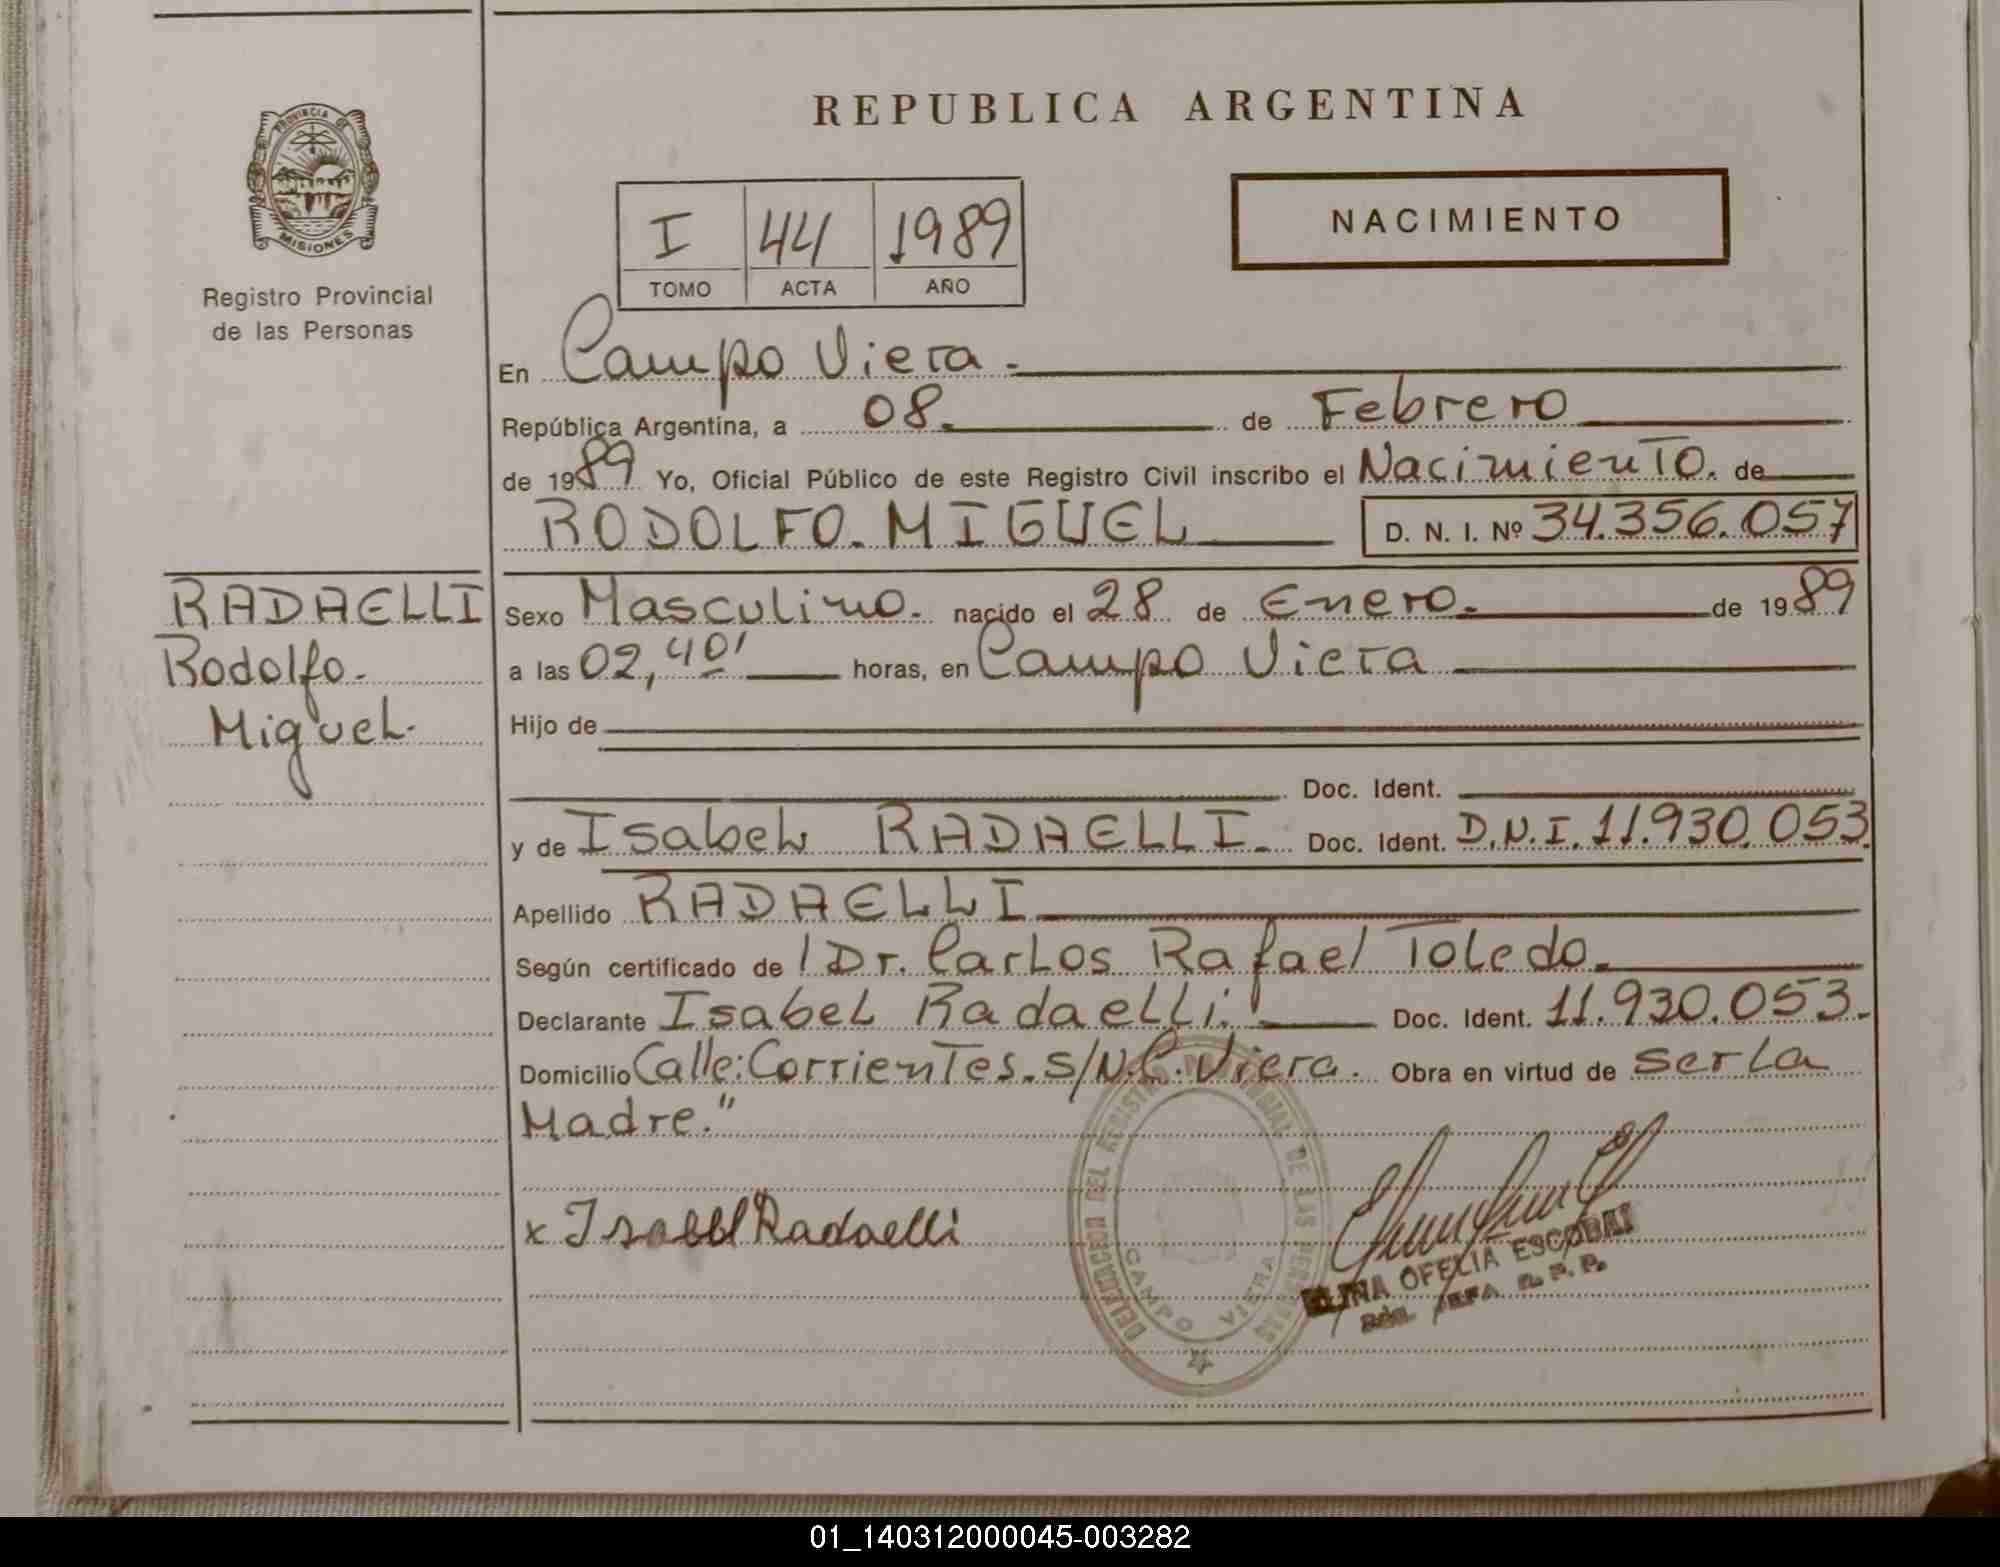 PROVINCIA DE
MISIONES
Registro Provincial
de las Personas
REPUBLICA ARGENTINA
I 44 1989
TOMO ACTA AÑO
NACIMIENTO
En Campo Viera.
República Argentina, a 08. de Febrero
de 1989 Yo, Oficial Público de este Registro Civil inscribo el Nacimiento. de
RODOLFO. MIGUEL D. N. I. Nº 34.356.057
RADAELLI
Rodolfo.
Miguel.
Sexo Masculino. nacido el 28 de Enero. de 1989
a las 02,40' horas, en Campo Viera
Hijo de
Doc. Ident.
y de Isabel RADAELLI. Doc. Ident. D.N.I. 11.930.053.
Apellido RADAELLI
Según certificado de Dr. Carlos Rafael Toledo.
Declarante Isabel Radaelli. Doc. Ident. 11.930.053.
Domicilio Calle: Corrientes. S/N. C. Viera. Obra en virtud de ser la
Madre."
x Isabel Radaelli
DELEGACION DEL REGISTRO PROVINCIAL DE LAS PERSONAS
CAMPO VIERA
OFELIA ESCOBAR
JEFA R. P. P.
01_140312000045-003282